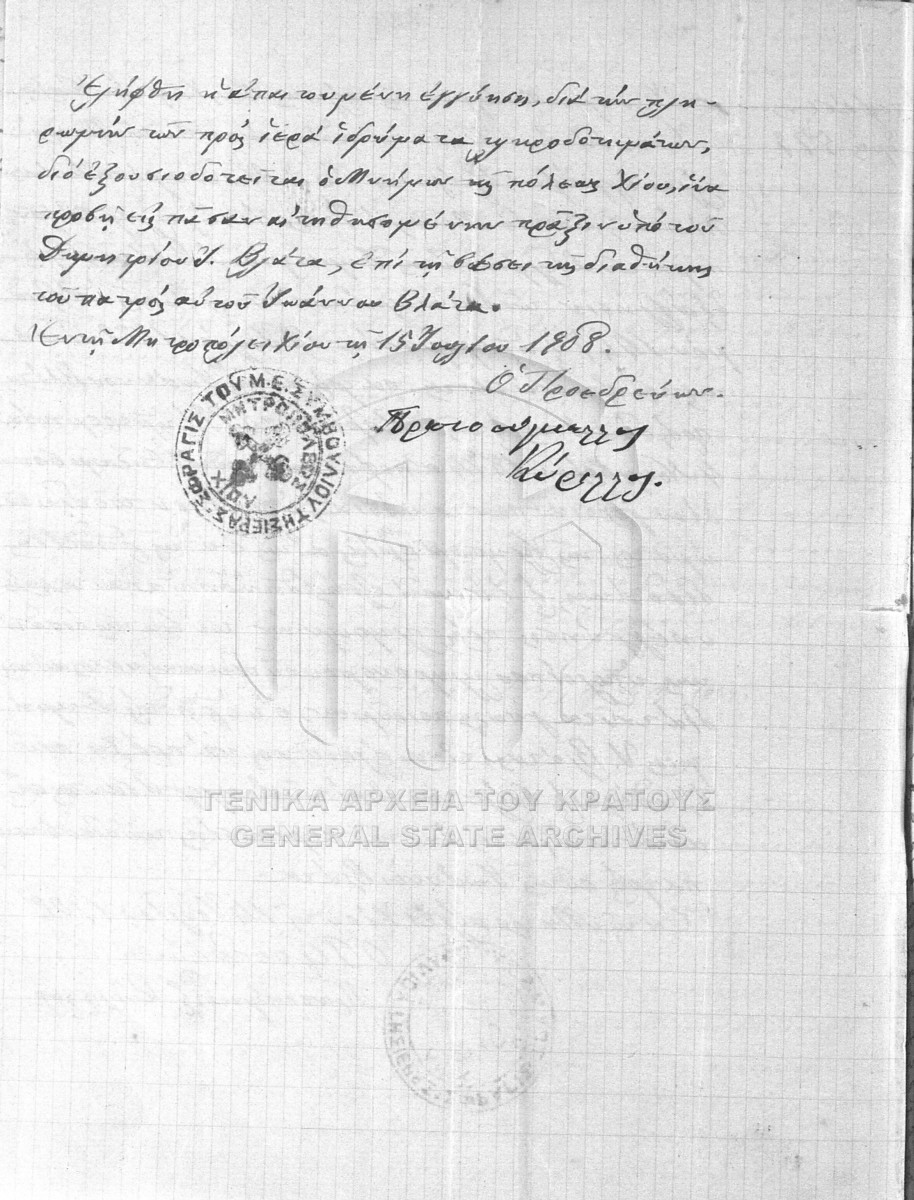 Ἐλήφθη ἡ ἀπαιτουμένη ἐγγύησις, διὰ τὴν πλη-
ρωμὴν τῶν πρὸς ἱερὰ ἱδρύματα κληροδοτημάτων,
διὸ ἐξουσιοδοτεῖται ὁ Μνήμων τῆς πόλεως Χίου, ἵνα
προβῇ εἰς πᾶσαν αἰτηθησομένην πρᾶξιν ὑπὸ τοῦ
Δημητρίου Ἰ. Βλάτα, ἐπὶ τῇ βάσει τῆς διαθήκης
τοῦ πατρὸς αὐτοῦ Ἰωάννου Βλάτα.
Ἐν τῇ Μητροπόλει Χίου τῇ 15 Ἰουλίου 1908.
Ὁ Προεδρεύων.
Πρωτοσύγκελλος
Κύριλλος.
ΣΦΡΑΓΙΣ ΤΟΥ Μ.Ε. ΣΥΜΒΟΥΛΙΟΥ ΤΗΣ ΙΕΡΑΣ
ΜΗΤΡΟΠΟΛΕΩΣ
ΧΙΟΥ
ΓΕΝΙΚΑ ΑΡΧΕΙΑ ΤΟΥ ΚΡΑΤΟΥΣ
GENERAL STATE ARCHIVES